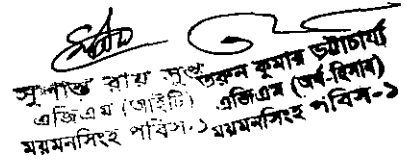 সুশান্ত রায় সুপ্ত
এজিএম (আইটি)
ময়মনসিংহ পবিস-১
তরুন কুমার ভট্টাচার্য্য
এজিএম (অর্থ-হিসাব)
ময়মনসিংহ পবিস-১